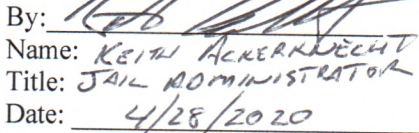 By:
Name: KEITH ACKERKNECHT
Title: JAIL ADMINISTRATOR
Date: 4/28/2020